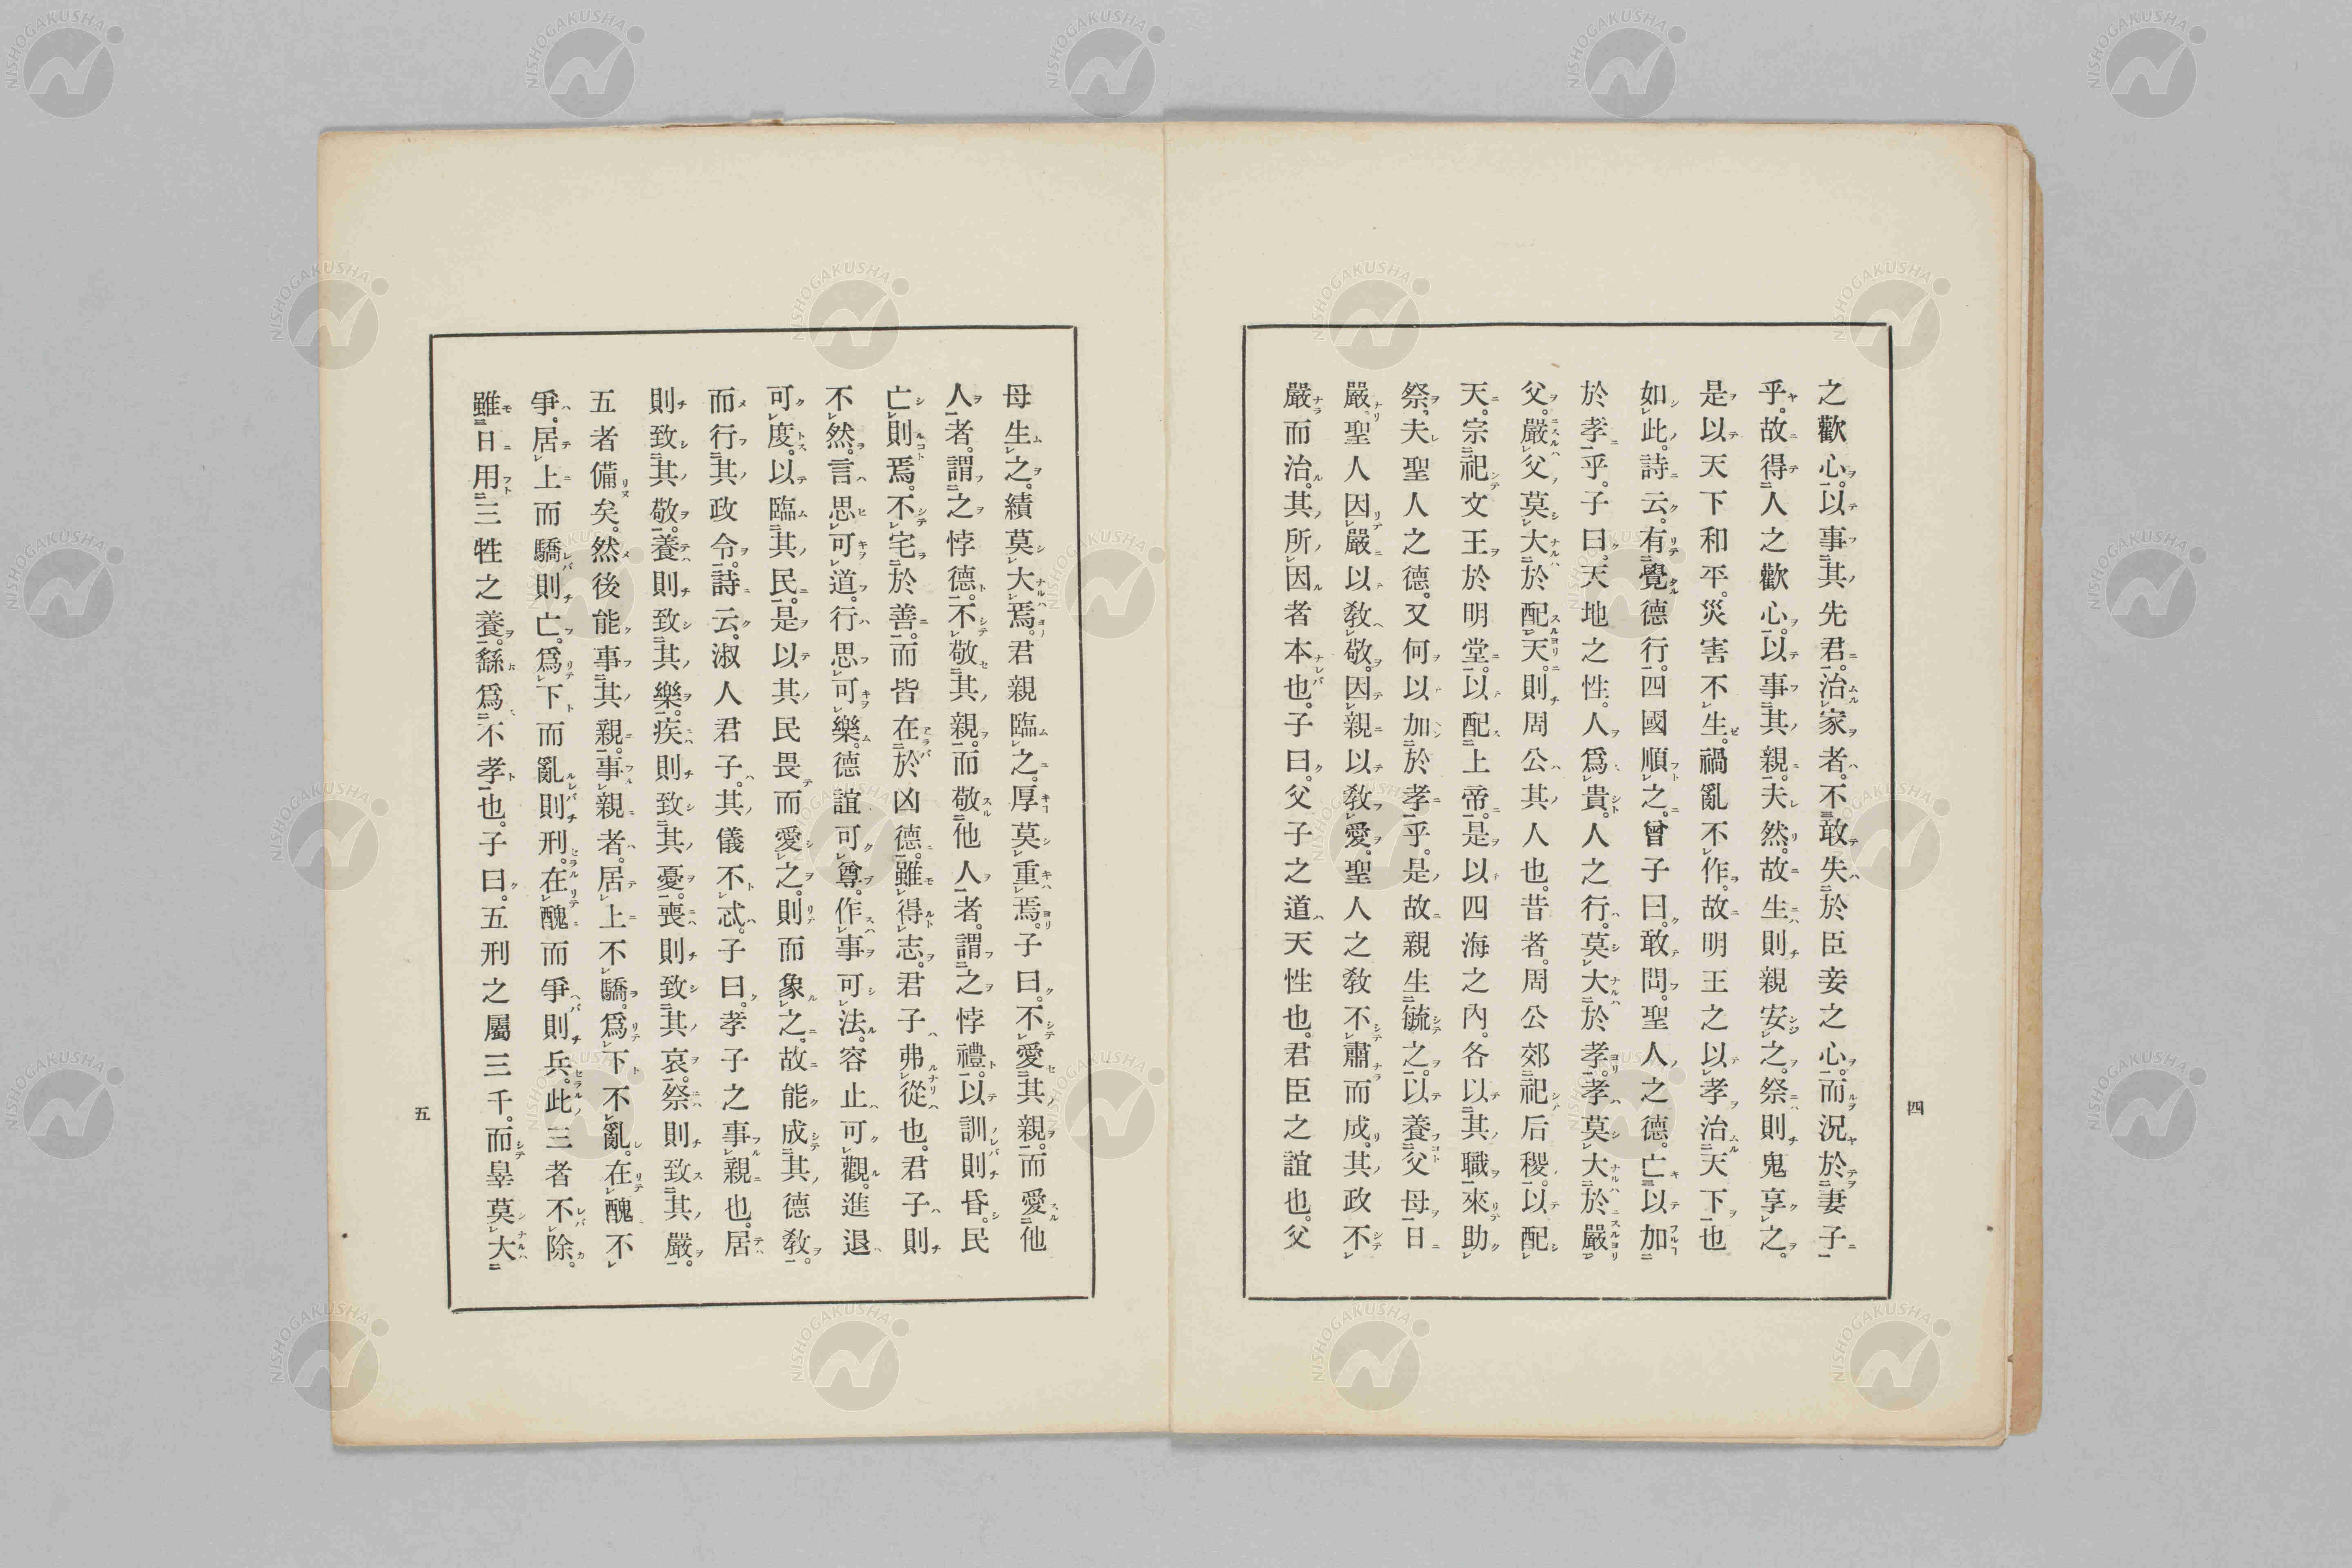 之歡心。以事其先君。治家者。不敢失於臣妾之心。而況於妻子
乎。故得人之歡心。以事其親。夫然。故生則親安之。祭則鬼享之。
是以天下和平。災害不生。禍亂不作。故明王之以孝治天下也
如此。詩云。有覺德行。四國順之。曾子曰。敢問。聖人之德。亡以加
於孝乎。子曰。天地之性。人爲貴。人之行。莫大於孝。孝莫大於嚴
父。嚴父莫大於配天。則周公其人也。昔者。周公郊祀后稷。以配
天。宗祀文王於明堂。以配上帝。是以四海之內。各以其職來助
祭。夫聖人之德。又何以加於孝乎。是故親生毓之。以養父母日
嚴。聖人因嚴以敎敬。因親以敎愛。聖人之敎不肅而成。其政不
嚴而治。其所因者本也。子曰。父子之道天性也。君臣之誼也。父
四
母生之。績莫大焉。君親臨之。厚莫重焉。子曰。不愛其親。而愛他
人者。謂之悖德。不敬其親。而敬他人者。謂之悖禮。以訓則昏。民
亡則焉。不宅於善。而皆在於凶德。雖得志。君子弗從也。君子則
不然。言思可道。行思可樂。德誼可尊。作事可法。容止可觀。進退
可度。以臨其民。是以其民畏而愛之。則而象之。故能成其德敎。
而行其政令。詩云。淑人君子。其儀不忒。子曰。孝子之事親也。居
則致其敬。養則致其樂。疾則致其憂。喪則致其哀。祭則致其嚴。
五者備矣。然後能事其親。事親者。居上不驕。爲下不亂。在醜不
爭。居上而驕則亡。爲下而亂則刑。在醜而爭則兵。此三者不除。
雖日用三牲之養。繇爲不孝也。子曰。五刑之屬三千。而辠莫大
五
NISHOGAKUSHA